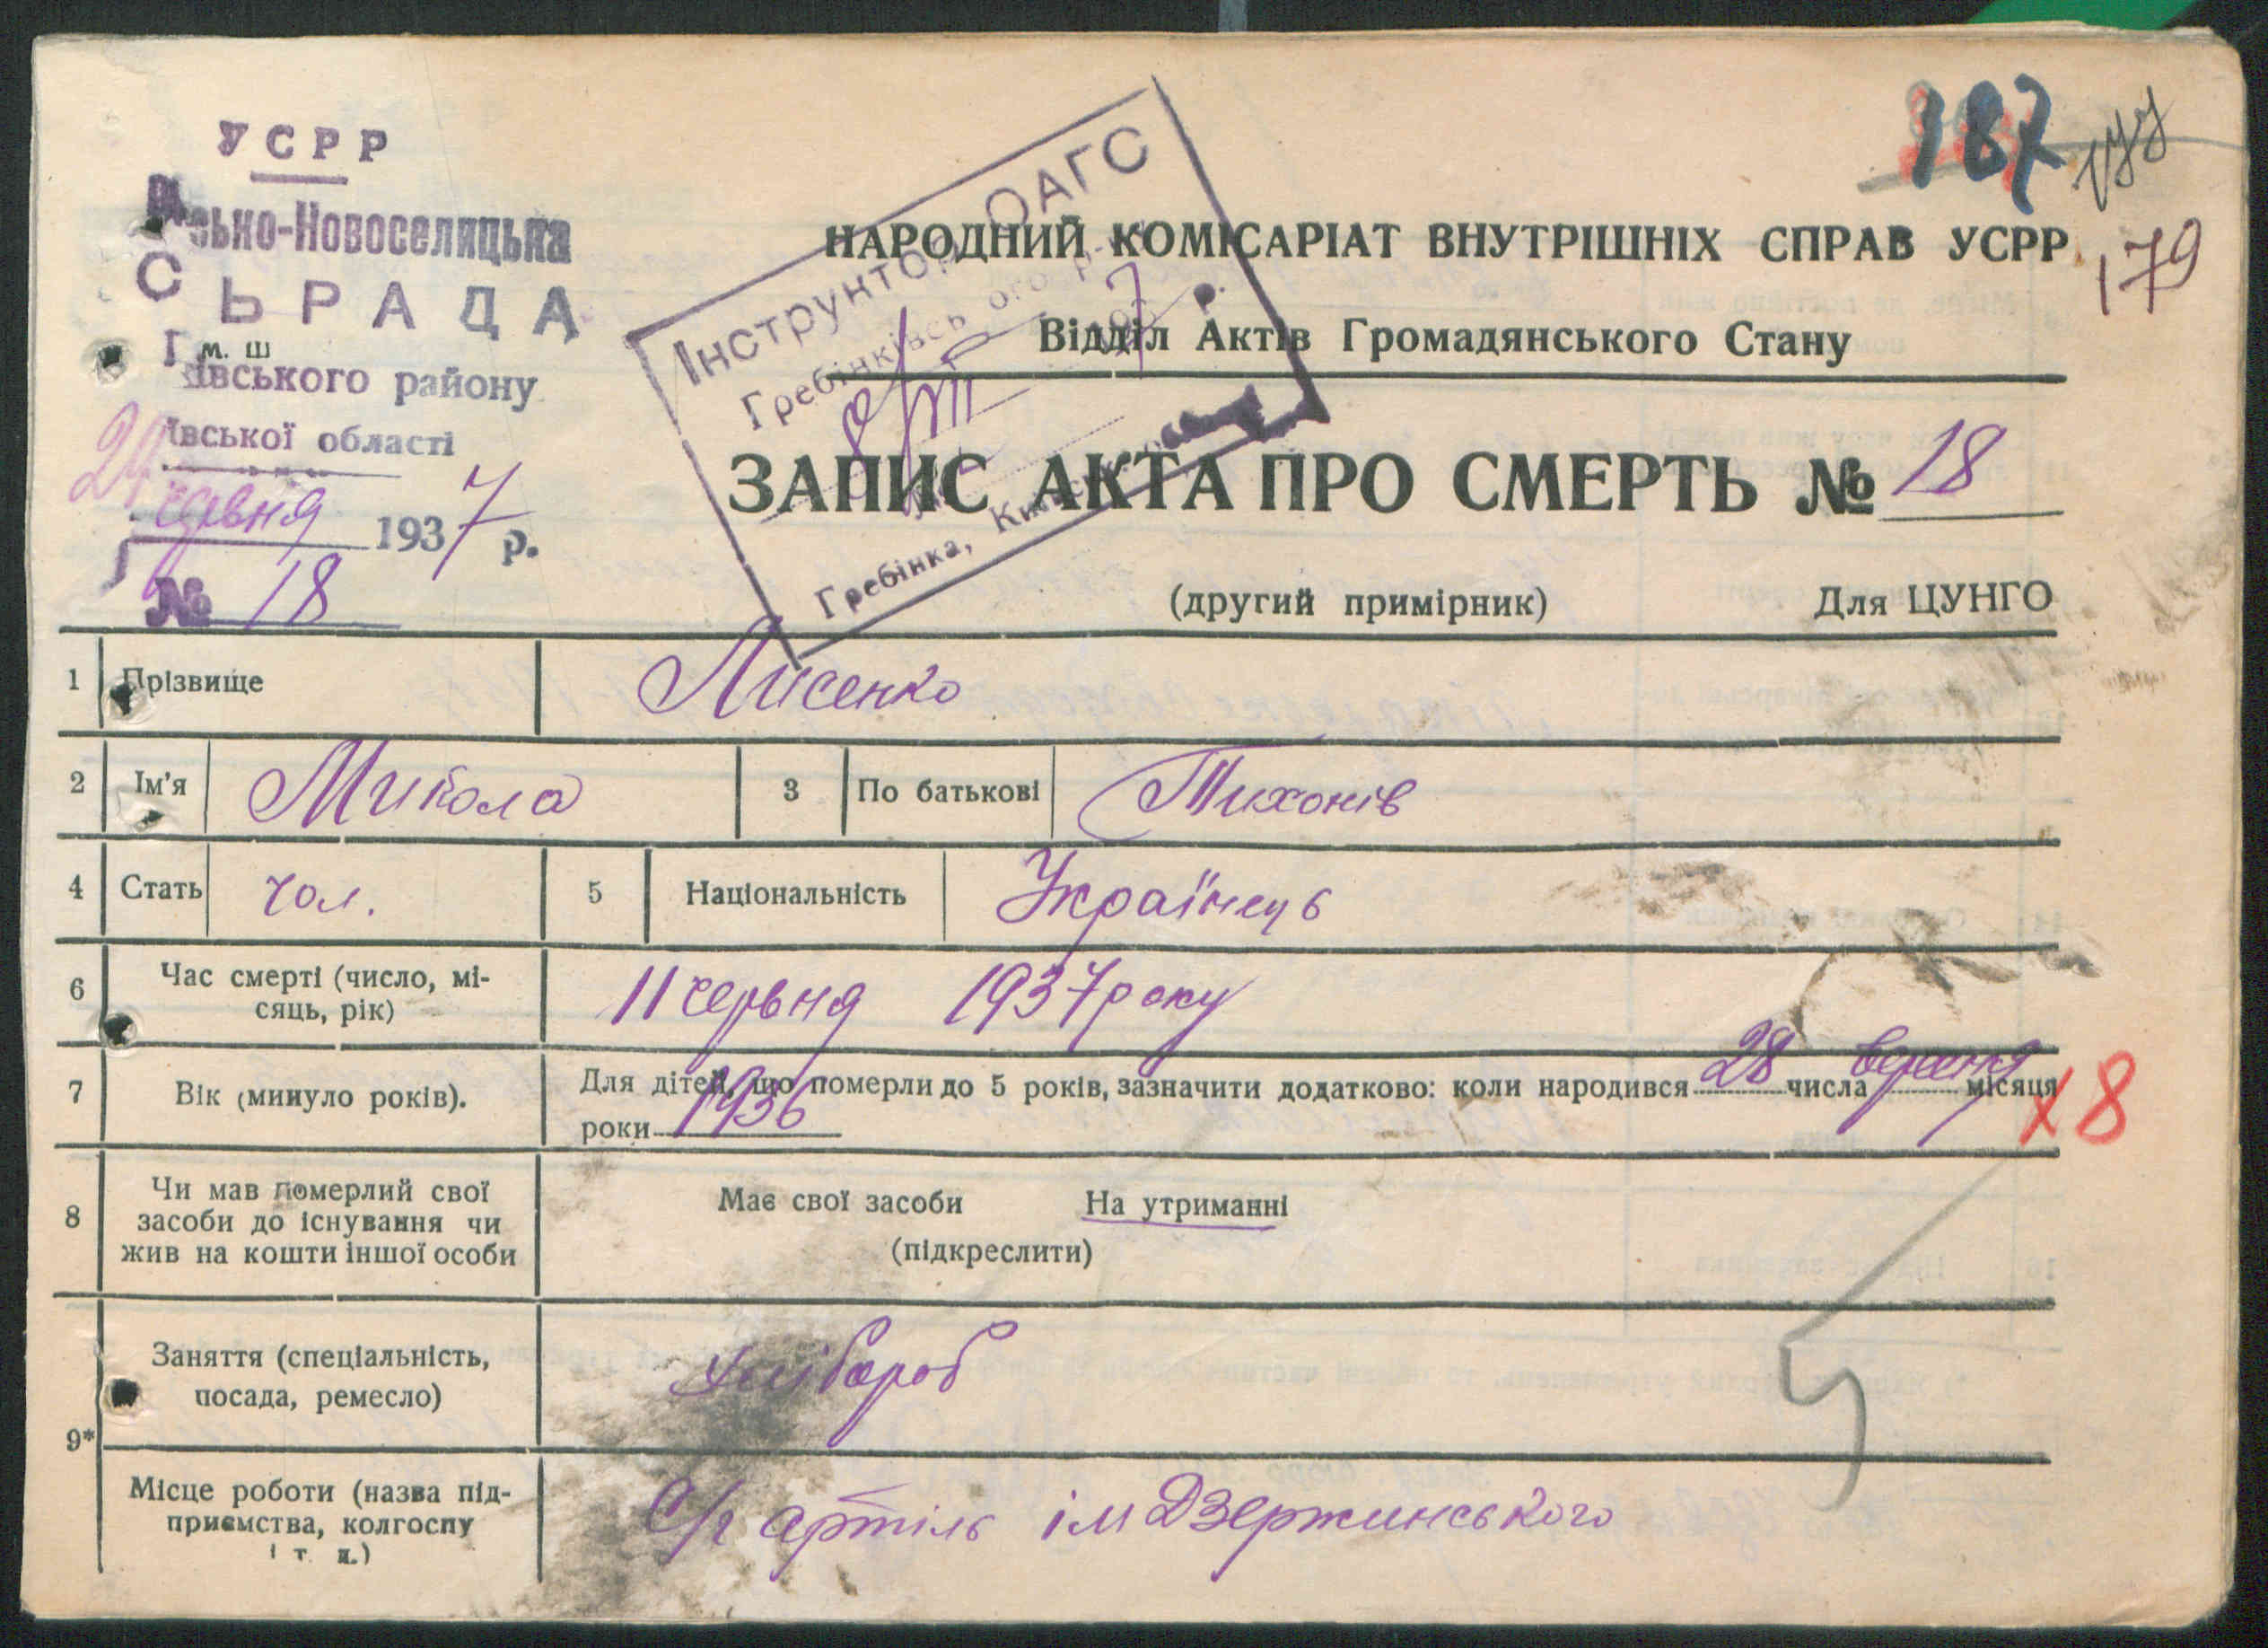 УСРР
сько-Новоселицька
С Ь Р А Д А
м. Ш
івського району
ївської області
24 червня 1937 р.
№ 18
Інструктор ОАГС
Гребінківсь ого р
8/VII 1937 р.
Гребінка, Київськ
187
177
179
НАРОДНИЙ КОМІСАРІАТ ВНУТРІШНІХ СПРАВ УСРР
Відділ Актів Громадянського Стану
ЗАПИС АКТА ПРО СМЕРТЬ № 18
(другий примірник) Для ЦУНГО
1 Прізвище Лисенко
2 Ім'я Микола 3 По батькові Тихонів
4 Стать чол. 5 Національність Українець
6 Час смерті (число, мі-
сяць, рік) 11 червня 1937 року
7 Вік (минуло років). Для дітей, що померли до 5 років, зазначити додатково: коли народився 28 числа вересня місяця
роки 1936
х 8
8 Чи мав померлий свої
засоби до існування чи
жив на кошти іншої особи
Має свої засоби На утриманні
(підкреслити)
9* Заняття (спеціальність,
посада, ремесло) Хлібороб
Місце роботи (назва під-
приємства, колгоспу
і т. п.) С/г артіль ім Дзержинського